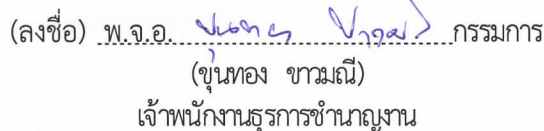 (ลงชื่อ) พ.จ.อ. ขุนทอง ขาวมณี กรรมการ
(ขุนทอง ขาวมณี)
เจ้าพนักงานธุรการชำนาญงาน